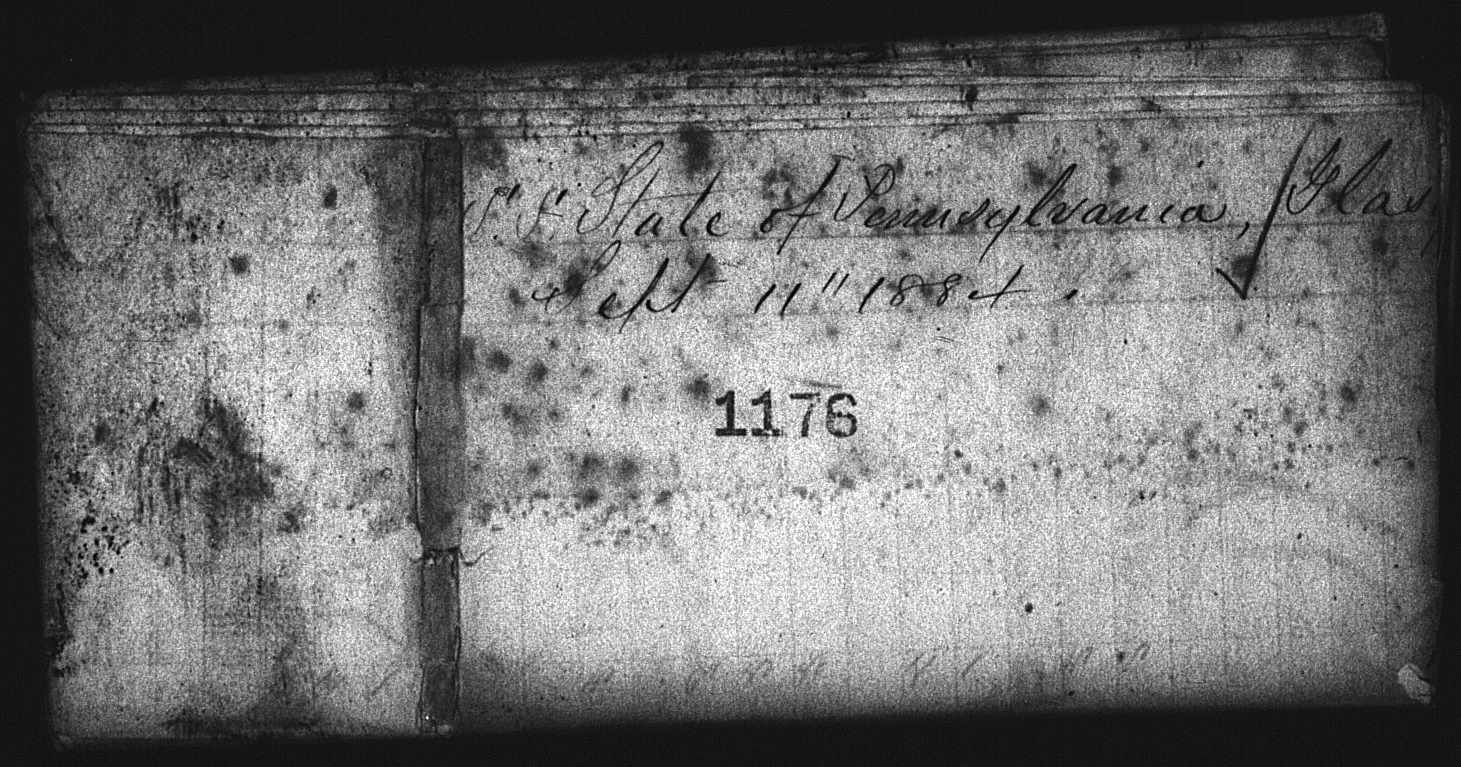 S.S. State of Pennsylvania, Glas,
Sept 11" 1884.
1176